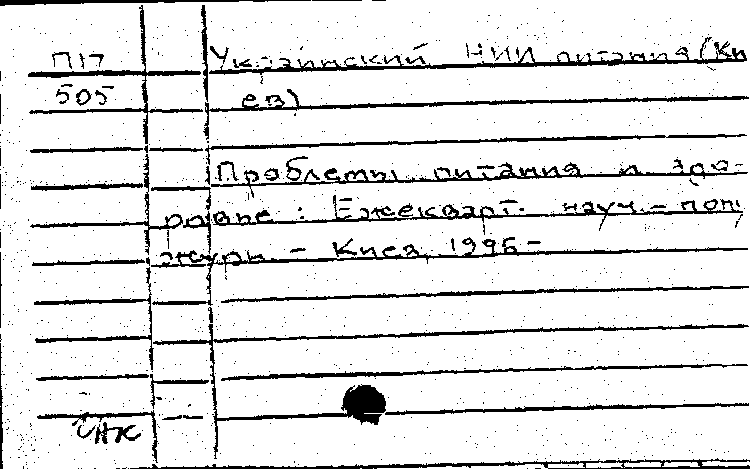 П17 Украинский НИИ питания (Ки
505 ев)
Проблемы питания и здо-
ровье : Ежекварт. науч.- поп.
журн. - Киев, 1996-